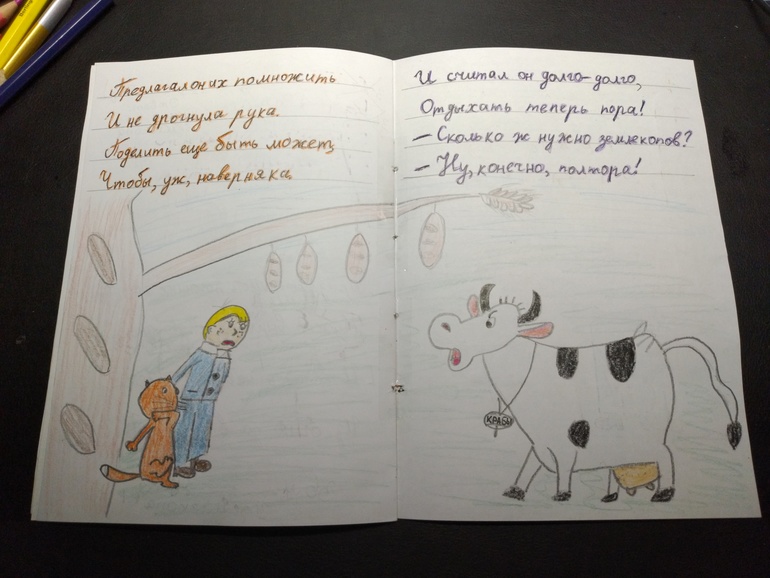 Предлагал он их помножить
И не дрогнула рука.
Поделить еще быть может,
Чтобы, уж, наверняка.
И считал он долго-долго,
Отдыхать теперь пора!
– Сколько ж нужно землекопов?
– Ну, конечно, полтора!
КРАБЫ